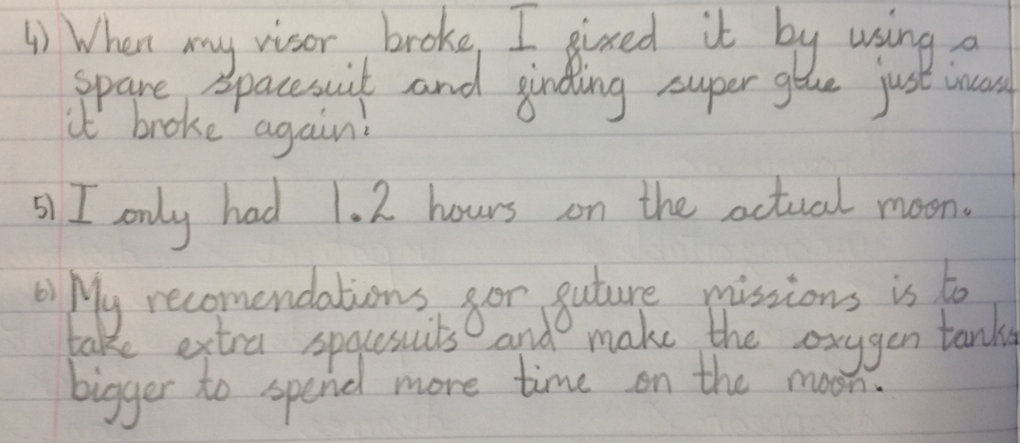 4) When my visor broke, I fixed it by using a
spare spacesuit and finding super glue just incase
it broke again!
5) I only had 1.2 hours on the actual moon.
6) My recomendations for future missions is to
take extra spacesuits and make the oxygen tanks
bigger to spend more time on the moon.